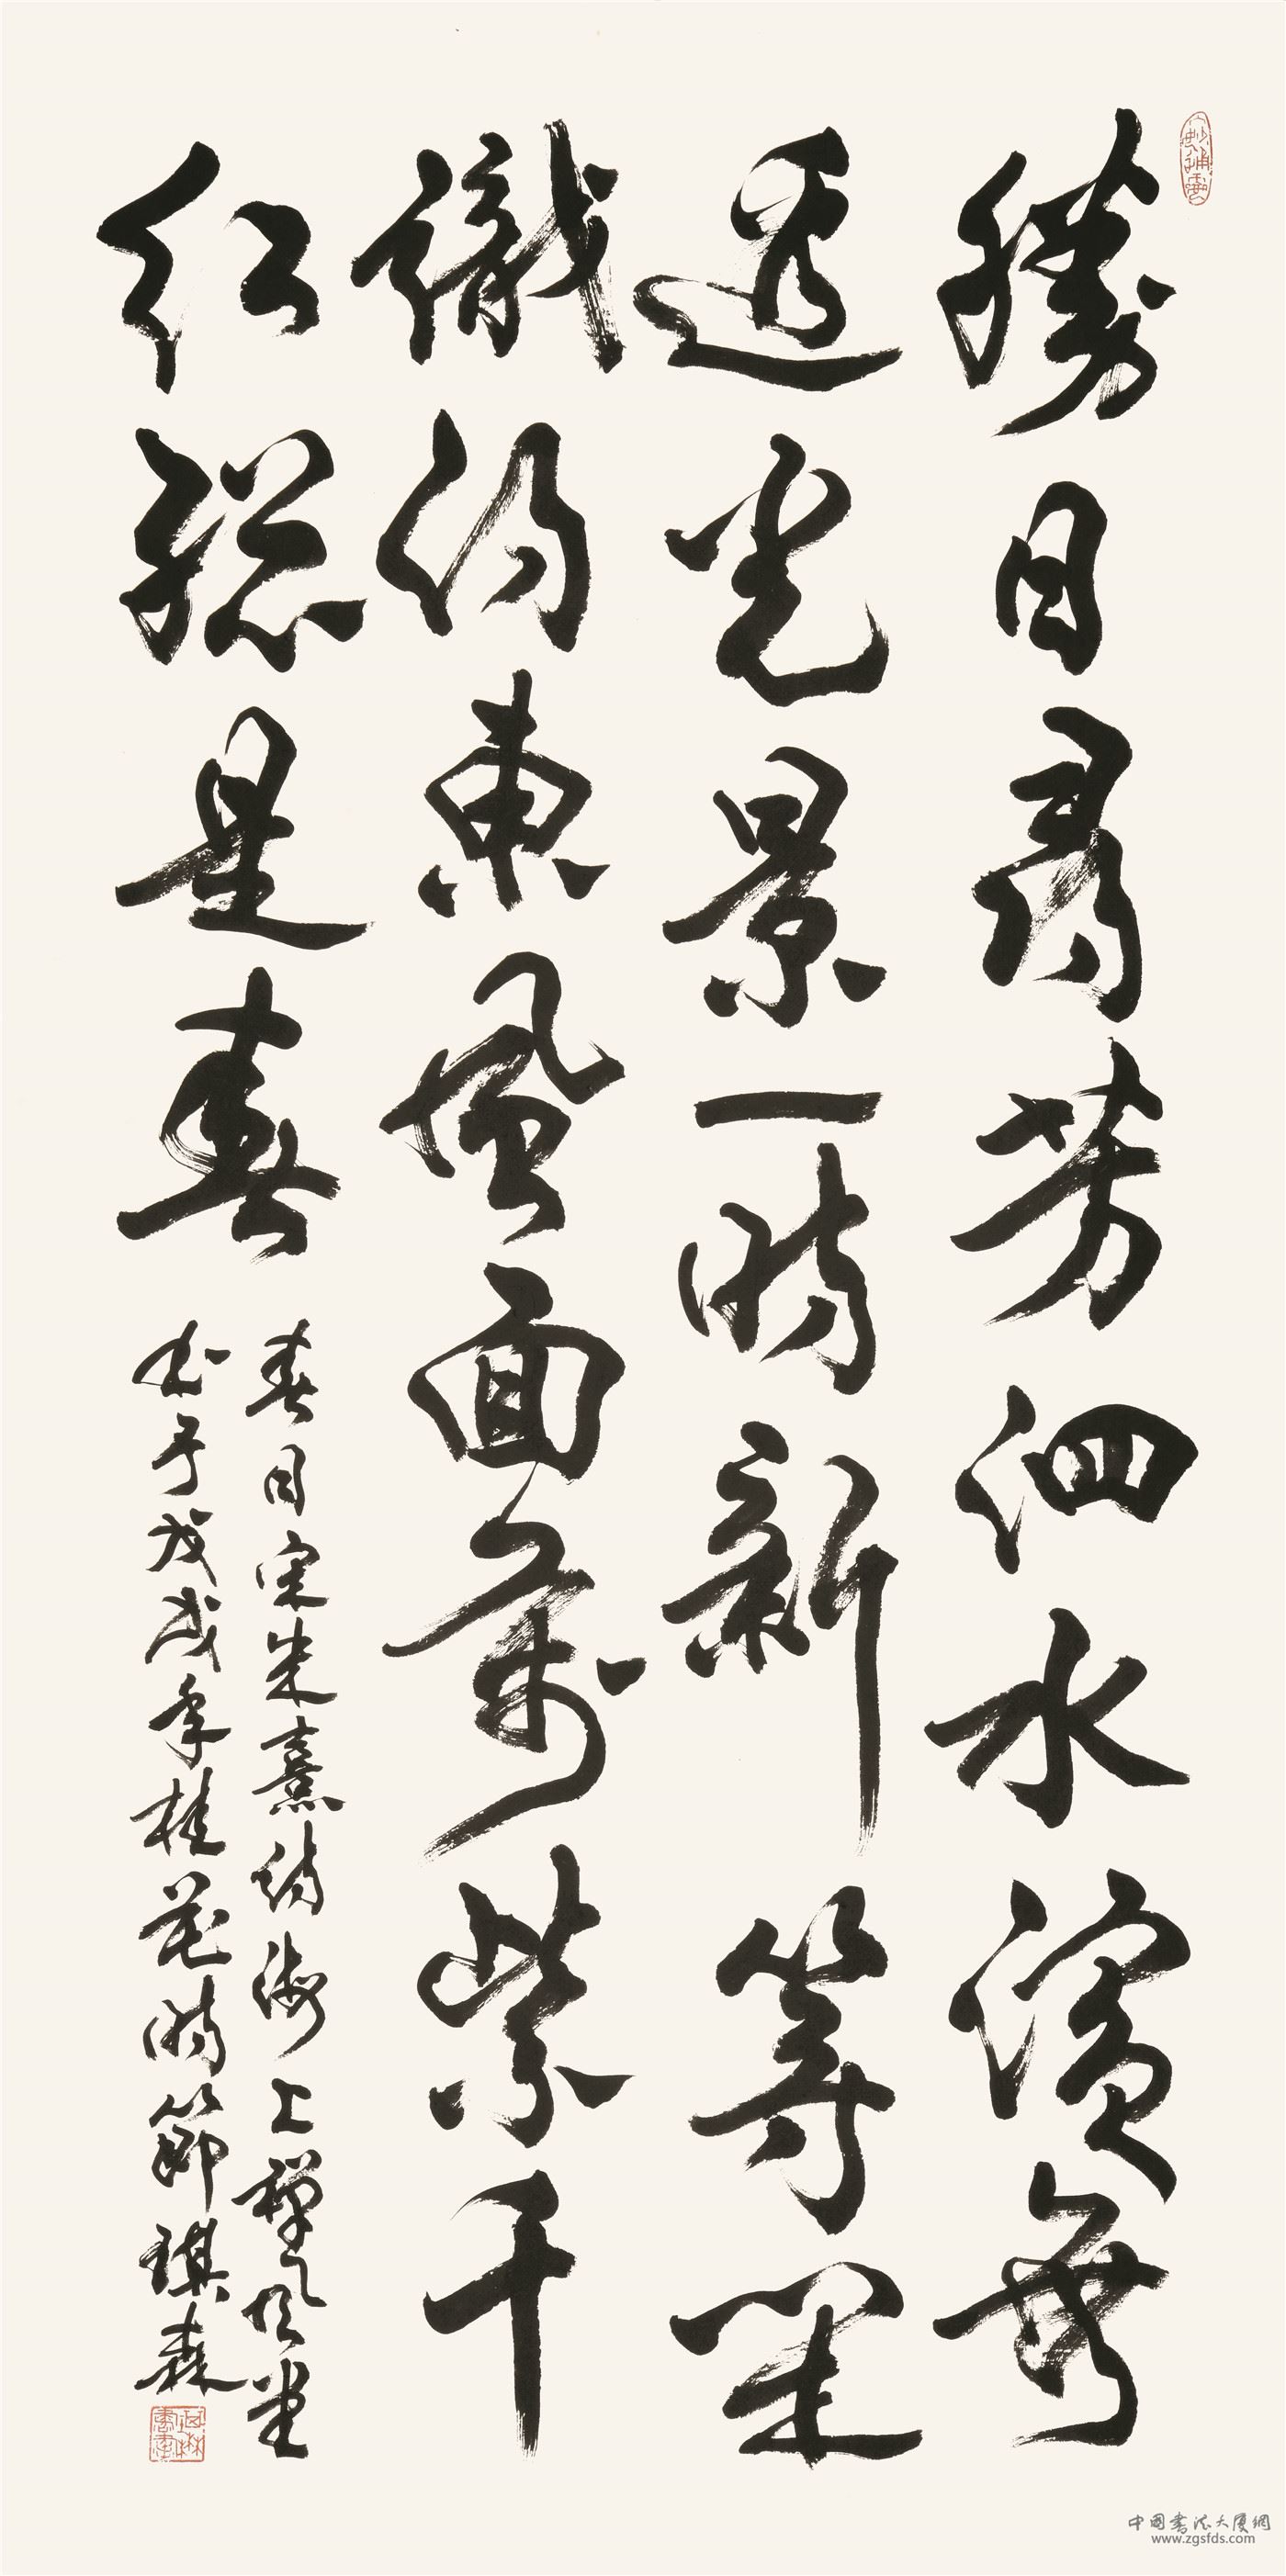 勝日尋芳泗水濱無
邊光景一時新等閑
識得東風面萬紫千
紅總是春
春日宋朱熹詩海上禪風堂
書于戊戌年桂花時節琪森
中國書法大廈網
www.zgsfds.com